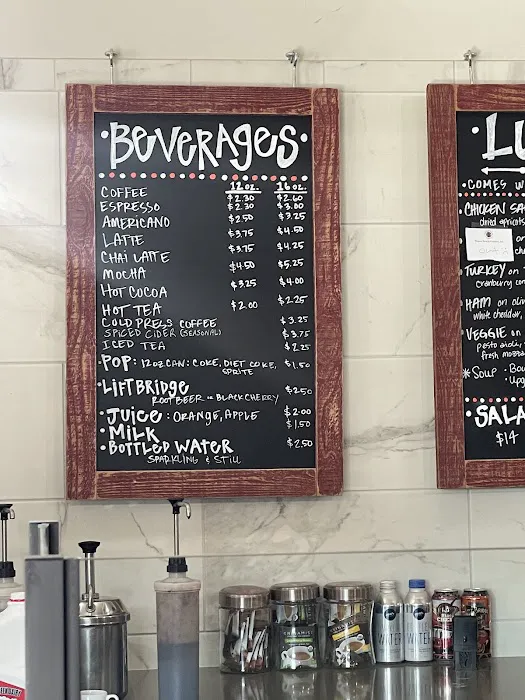 •BEVERAGES•
12 oz. 16 oz.
COFFEE $2.30 $2.60
ESPRESSO $2.30 $3.00
AMERICANO $2.50 $3.25
LATTE $3.75 $4.50
CHAI LATTE $3.75 $4.25
MOCHA $4.50 $5.25
HOT COCOA $3.25 $4.00
HOT TEA $2.00 $2.25
COLD PRESS COFFEE $3.25
SPICED CIDER (SEASONAL) $3.75
ICED TEA $2.25
•POP: 12oz CAN: COKE, DIET COKE, $1.50
SPRITE
•LIFTBRIDGE $2.50
ROOT BEER or BLACK CHERRY
•JUICE: ORANGE, APPLE $2.00
•MILK $1.50
•BOTTLED WATER $2.50
SPARKLING & STILL
•LU
•COMES W
•CHICKEN SA
dried apricots
•TURKEY on
cranberry con
•HAM on oliv
white cheddar,
•VEGGIE on
pesto aioli,
fresh mozza
*SOUP •Bou
•Upg
•SALA
$14
WATER
WATER